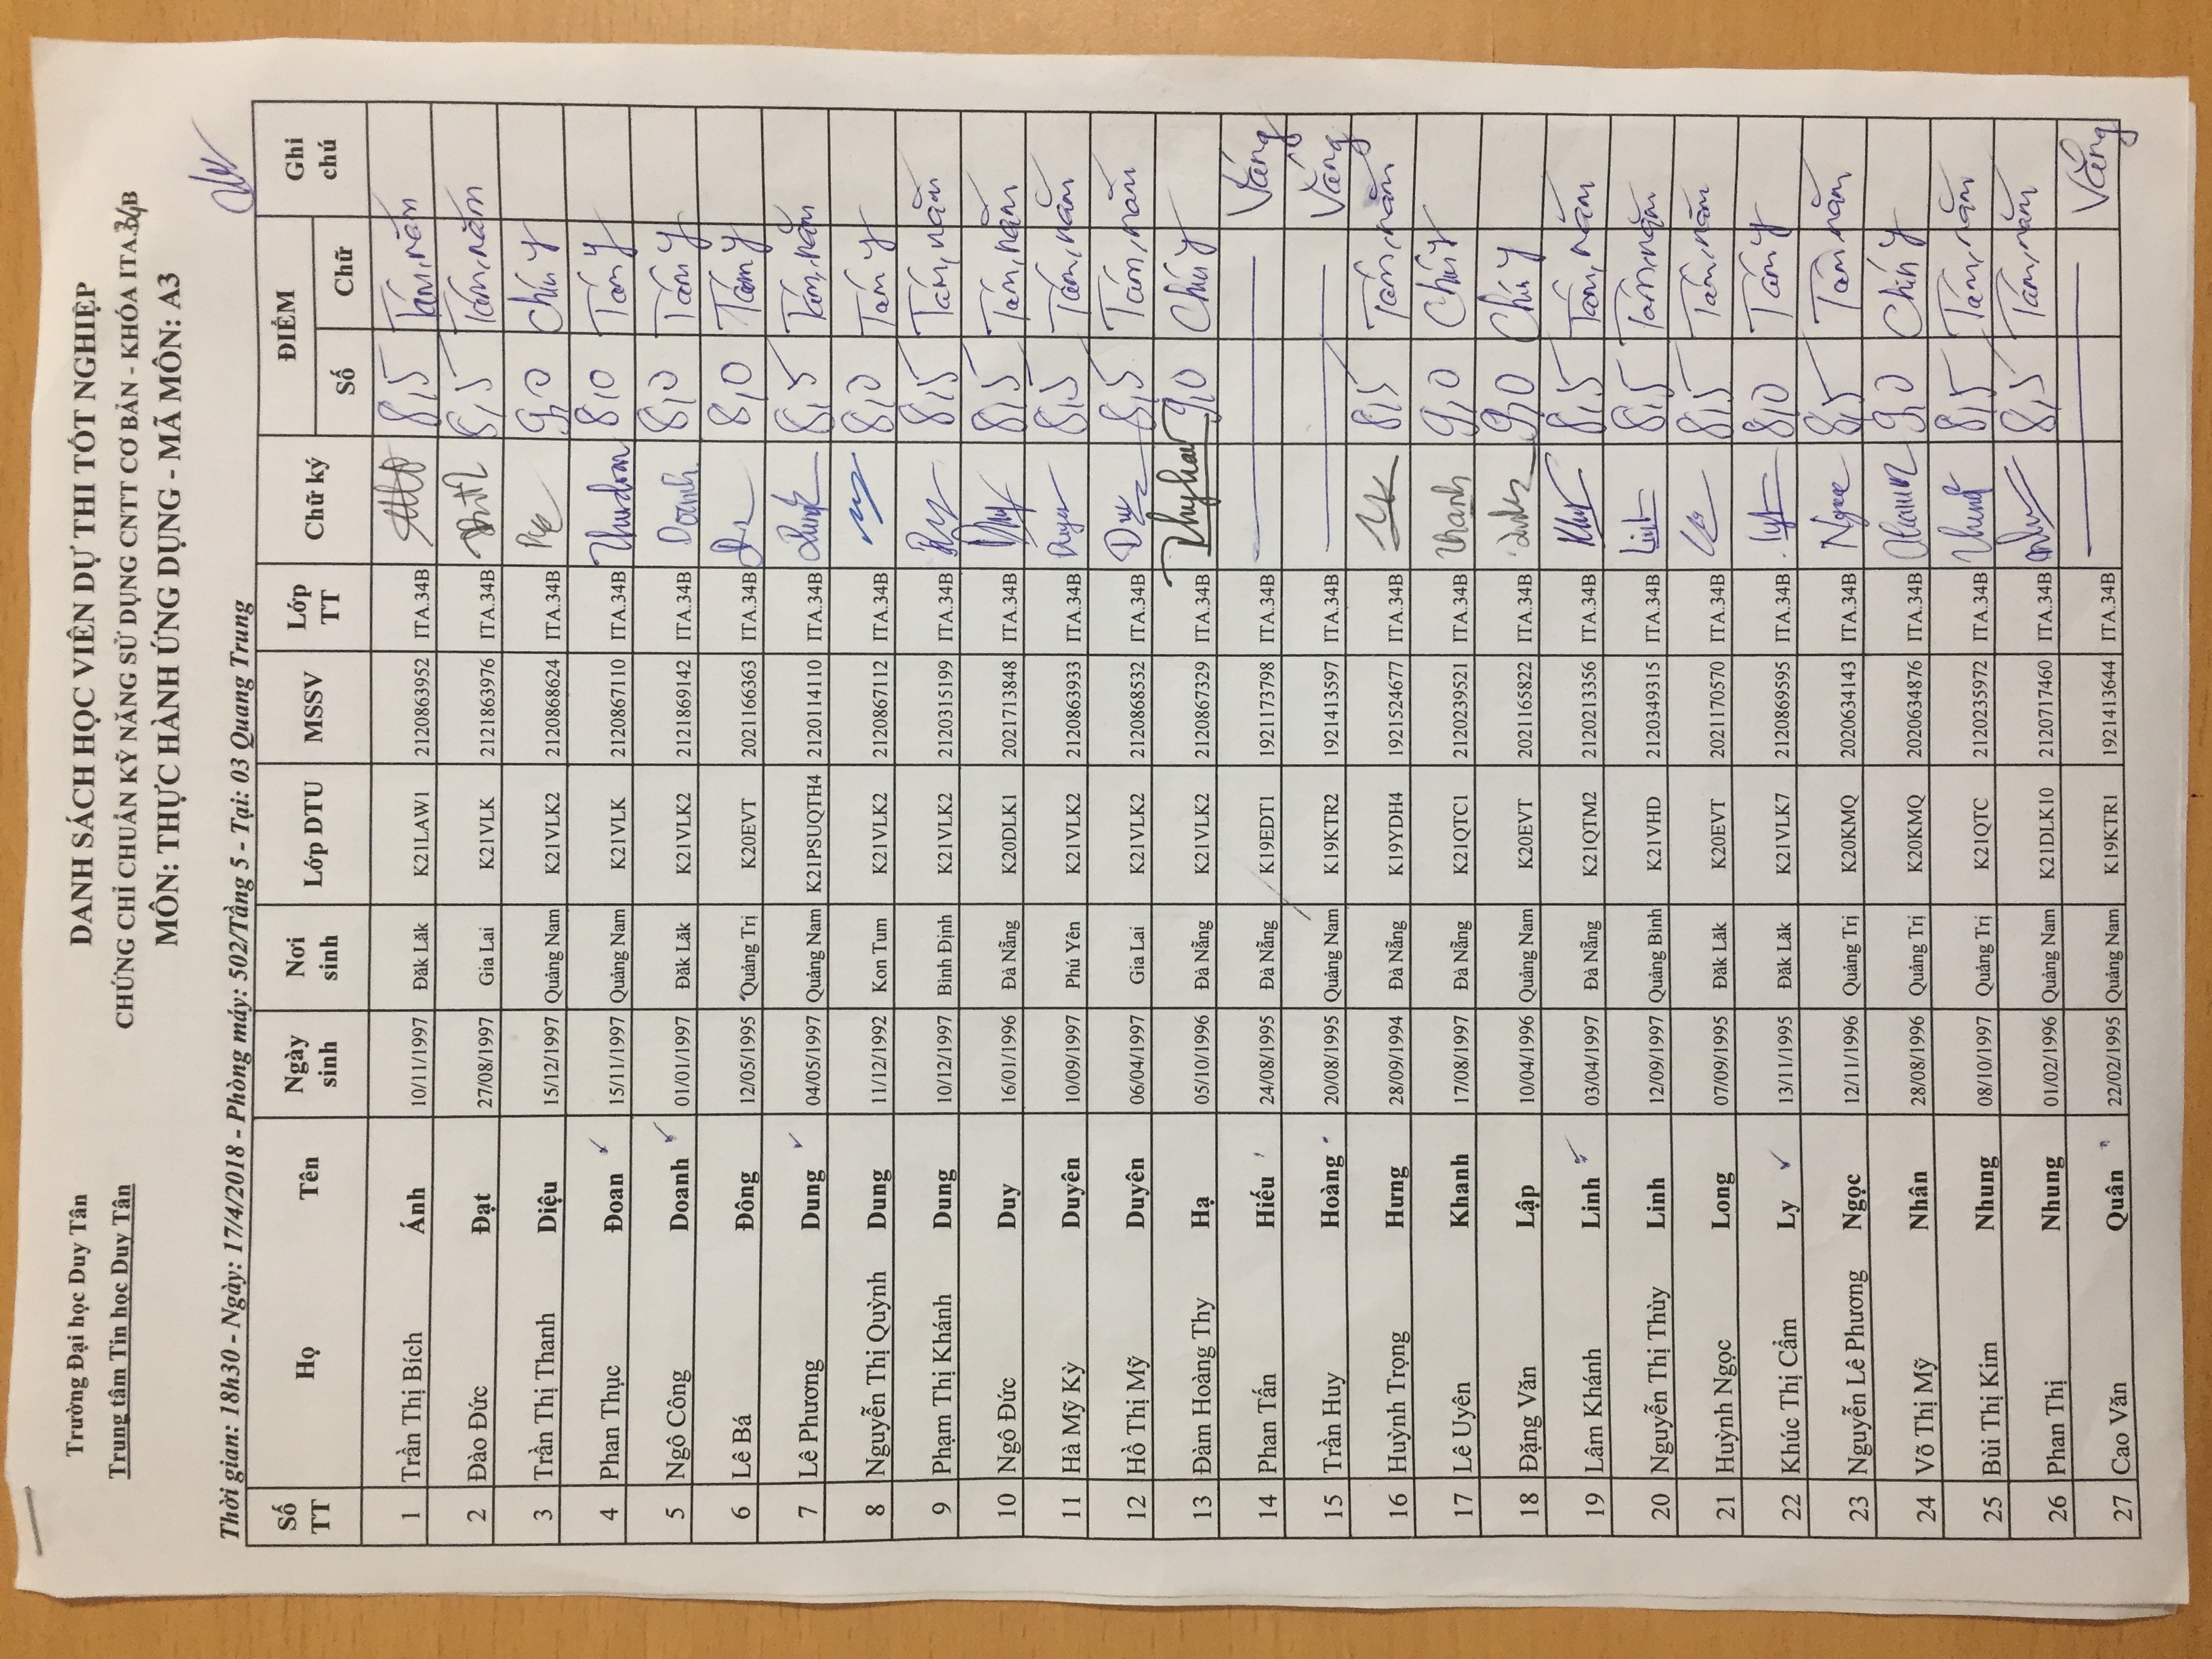 Trường Đại học Duy Tân
Trung tâm Tin học Duy Tân
DANH SÁCH HỌC VIÊN DỰ THI TỐT NGHIỆP
CHỨNG CHỈ CHUẨN KỸ NĂNG SỬ DỤNG CNTT CƠ BẢN - KHÓA ITA.34B
MÔN: THỰC HÀNH ỨNG DỤNG - MÃ MÔN: A3
Thời gian: 18h30 - Ngày: 17/4/2018 - Phòng máy: 502/Tầng 5 - Tại: 03 Quang Trung
Số TT Họ Tên Ngày sinh Nơi sinh Lớp DTU MSSV Lớp TT Chữ ký ĐIỂM Số Chữ Ghi chú
1 Trần Thị Bích Ánh 10/11/1997 Đăk Lăk K21LAW1 2120863952 ITA.34B 8,5 Tám, năm
2 Đào Đức Đạt 27/08/1997 Gia Lai K21VLK 2121863976 ITA.34B 8,5 Tám, năm
3 Trần Thị Thanh Diệu 15/12/1997 Quảng Nam K21VLK2 2120868624 ITA.34B 9,0 Chín y
4 Phan Thục Đoan 15/11/1997 Quảng Nam K21VLK 2120867110 ITA.34B Thucdoan 8,0 Tám y
5 Ngô Công Doanh 01/01/1997 Đăk Lăk K21VLK2 2121869142 ITA.34B Doanh 8,0 Tám y
6 Lê Bá Đông 12/05/1995 Quảng Trị K20EVT 2021166363 ITA.34B 8,0 Tám y
7 Lê Phương Dung 04/05/1997 Quảng Nam K21PSUQTH4 2120114110 ITA.34B Dung 8,5 Tám, năm
8 Nguyễn Thị Quỳnh Dung 11/12/1992 Kon Tum K21VLK2 2120867112 ITA.34B 8,0 Tám y
9 Phạm Thị Khánh Dung 10/12/1997 Bình Định K21VLK2 2120315199 ITA.34B 8,5 Tám, năm
10 Ngô Đức Duy 16/01/1996 Đà Nẵng K20DLK1 2021713848 ITA.34B Duy 8,5 Tám, năm
11 Hà Mỹ Kỳ Duyên 10/09/1997 Phú Yên K21VLK2 2120863933 ITA.34B 8,5 Tám, năm
12 Hồ Thị Mỹ Duyên 06/04/1997 Gia Lai K21VLK2 2120868532 ITA.34B 8,5 Tám, năm
13 Đàm Hoàng Thy Hạ 05/10/1996 Đà Nẵng K21VLK2 2120867329 ITA.34B Thyha 9,0 Chín y
14 Phan Tấn Hiếu 24/08/1995 Đà Nẵng K19EDT1 1921173798 ITA.34B Vắng
15 Trần Huy Hoàng 20/08/1995 Quảng Nam K19KTR2 1921413597 ITA.34B Vắng
16 Huỳnh Trọng Hưng 28/09/1994 Đà Nẵng K19YDH4 1921524677 ITA.34B 8,5 Tám, năm
17 Lê Uyên Khanh 17/08/1997 Đà Nẵng K21QTC1 2120239521 ITA.34B Khanh 9,0 Chín y
18 Đặng Văn Lập 10/04/1996 Quảng Nam K20EVT 2021165822 ITA.34B 9,0 Chín y
19 Lâm Khánh Linh 03/04/1997 Đà Nẵng K21QTM2 2120213356 ITA.34B 8,5 Tám, năm
20 Nguyễn Thị Thùy Linh 12/09/1997 Quảng Bình K21VHD 2120349315 ITA.34B Linh 8,5 Tám, năm
21 Huỳnh Ngọc Long 07/09/1995 Đăk Lăk K20EVT 2021170570 ITA.34B 8,5 Tám, năm
22 Khúc Thị Cẩm Ly 13/11/1995 Đăk Lăk K21VLK7 2120869595 ITA.34B 8,0 Tám y
23 Nguyễn Lê Phương Ngọc 12/11/1996 Quảng Trị K20KMQ 2020634143 ITA.34B Ngọc 8,5 Tám, năm
24 Võ Thị Mỹ Nhân 28/08/1996 Quảng Trị K20KMQ 2020634876 ITA.34B 9,0 Chín y
25 Bùi Thị Kim Nhung 08/10/1997 Quảng Trị K21QTC 2120235972 ITA.34B Nhung 8,5 Tám, năm
26 Phan Thị Nhung 01/02/1996 Quảng Nam K21DLK10 2120717460 ITA.34B 8,5 Tám, năm
27 Cao Văn Quân 22/02/1995 Quảng Nam K19KTR1 1921413644 ITA.34B Vắng